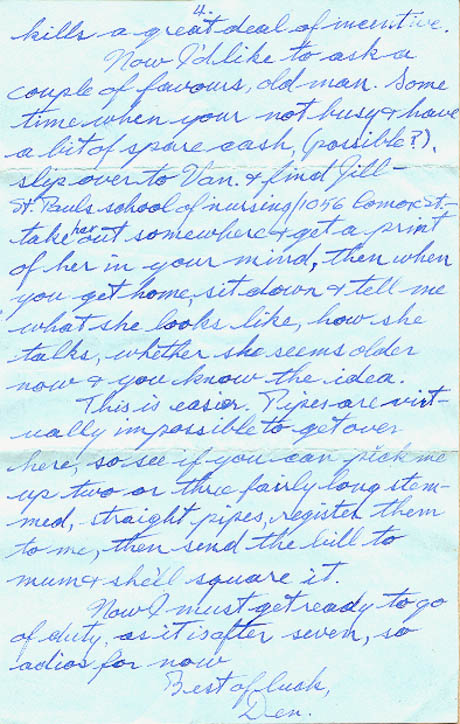 4.
kills a great deal of incentive.
Now I'd like to ask a
couple of favours, old man. Some
time when your not busy & have
a bit of spare cash, (possible?),
slip over to Van. & find Jill—
St. Pauls school of nursing/1056 Comox St.—
take her out somewhere & get a print
of her in your mind, then when
you get home, sit down & tell me
what she looks like, how she
talks, whether she seems older
now & you know the idea.
This is easier. Pipes are virt-
ually impossible to get over
here, so see if you can pick me
up two or three fairly long stem-
med, straight pipes, register them
to me, then send the bill to
mum & she'll square it.
Now I must get ready to go
of duty, as it is after seven, so
adios for now
Best of luck,
Den.